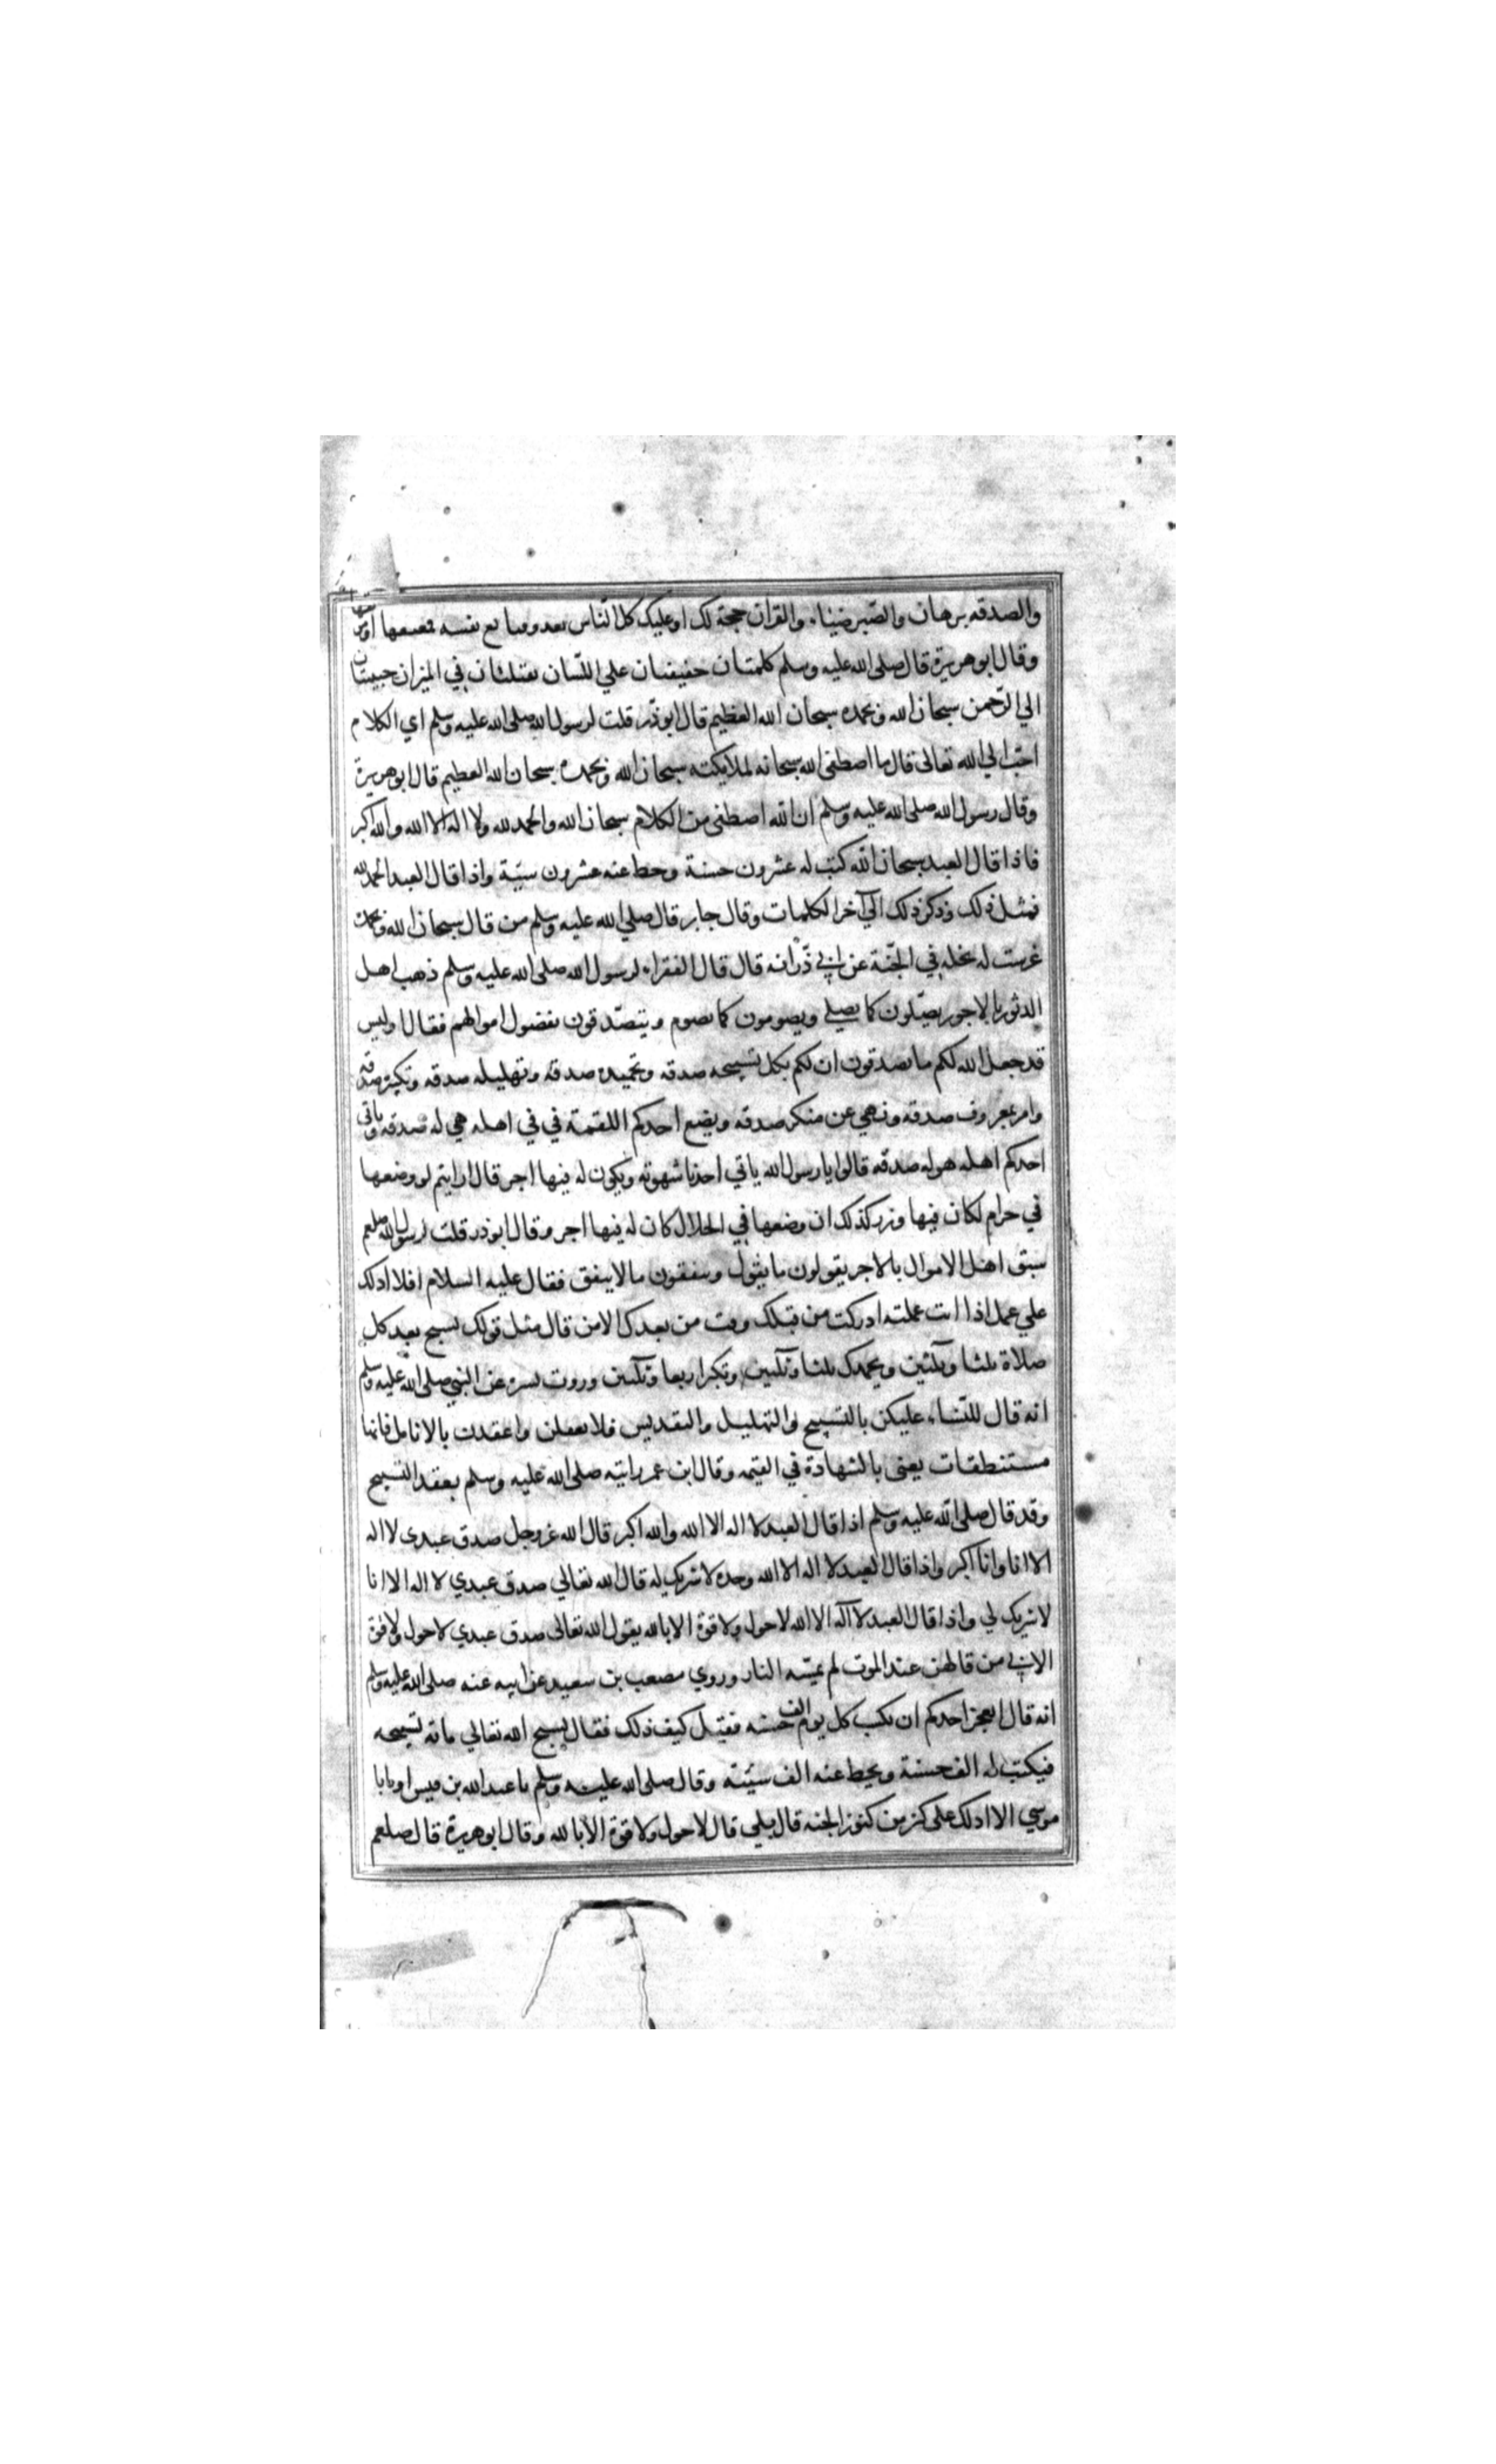 والصدقه برهان والصبر ضياء والقرآن حجة لك او عليك كل الناس يغدو فبايع نفسه
وقال ابو هريرة قال صلى الله عليه وسلم كلمتان خفيفتان علي اللسان ثقيلتان في الميزان حبيبتان
الي الرّحمن سبحان الله وبحمده سبحان الله العظيم قال ابو ذّر قلت لرسول الله صلى الله عليه وسلم اي الكلام
احبّ الي الله تعالى قال ما اصطفى الله سبحانه لملايكته سبحان الله وبحمده سبحان الله العظيم قال ابو هريرة
وقال رسول الله صلى الله عليه وسلم ان الله اصطفى من الكلام سبحان الله والحمد لله ولا اله الا الله والله اكبر
فاذا قال العبد سبحان الله كتب له عشرون حسنة وحط عنه عشرون سيّية واذا قال العبد الحمد لله
فمثل ذلك وذكر ذلك الي آخر الكلمات وقال جابر قال صلي الله عليه وسلم من قال سبحان الله وبحمده
غرست له نخله في الجنّة عن ابي ذّر انه قال قال الفقراء لرسول الله صلى الله عليه وسلم ذهب اهل
الدثور بالاجور يصّلون كما نصلي ويصومون كما نصوم ويتصّدقون بفضول اموالهم فقال اوليس
قد جعل الله لكم ما تصدقون ان لكم بكل تسبيحه صدقه وتحميده صدقه وتهليله صدقه وتكبيرة صدقه
وامر بمعروف صدقه ونهي عن منكر صدقه ويضع احدكم اللقمة في في اهله هي له صدقه وياتي
احدكم اهله هو له صدقه قالوا يا رسول الله ياتي احدنا شهوته ويكون له فيها اجر قال ارايتم لو وضعها
في حرام لكان فيها وزر كذلك ان وضعها في الحلال كان له فيها اجر وقال ابو ذر قلت لرسول الله صلعم
سبق اهل الاموال بالاجر يقولون ما يقول وينفقون ما لا ينفق فقال عليه السلام افلا ادلك
علي عمل اذا انت عملته ادركت من قبلك وفت من بعدك الا من قال مثل قولك تسبح بعد كل
صلاة ثلثا وثلثين وتحمدك ثلثا وثلثين وتكبر اربعا وثلثين وروت يسرة عن النبي صلى الله عليه وسلم
انه قال للنساء عليكن بالتسبيح والتهليل والتقديس فلا تغفلن واعقدت بالانامل فانها
مستنطقات يعنى بالشهادة في القيمه وقال ابن عمر رايته صلى الله عليه وسلم يعقد التسبيح
وقد قال صلى الله عليه وسلم اذا قال العبد لا اله الا الله والله اكبر قال الله عز وجل صدق عبدى لا اله
الا انا وانا اكبر واذا قال العبد لا اله الا الله وحده لا شريك له قال الله تعالي صدق عبدي لا اله الا انا
لا شريك لي واذا قال العبد لا اله الا الله لا حول ولا قوة الا بالله يقول الله تعالى صدق عبدي لا حول ولا قوة
الا بي من قالهن عند الموت لم تمسّه النار وروي مصعب بن سعيد عن ابيه عنه صلى الله عليه وسلم
انه قال ايعجز احدكم ان يكسب كل يوم الف حسنه فقيل كيف ذلك فقال يسبح الله تعالي مائة تسبيحه
فيكتب له الف حسنة ويحط عنه الف سيّئه وقال صلى الله عليه وسلم يا عبد الله بن قيس او يا ابا
موسي الا ادلك على كنز من كنوز الجنه قال بلي قال لا حول ولا قوة الا بالله وقال ابو هريرة قال صلعم